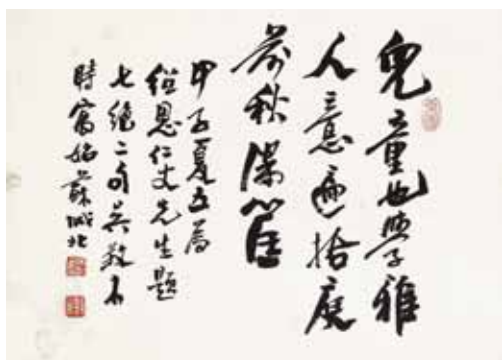 兒童也學雅
人意遍拾庭
前秋滿筐
甲子夏五為
恩仁丈先生題
七絕二句吳敔木
時寓姑蘇城北